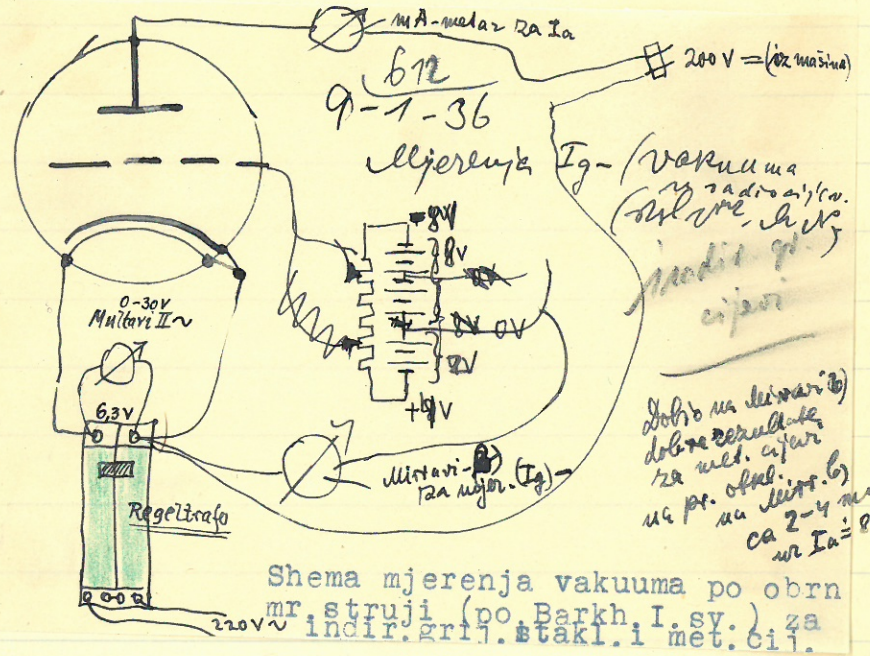 mA-metar za Ia
200V = (iz mašina)
612
9-1-36
Mjerenja Ig- (vakuuma
u radiocijev.
indir. gr.
cijevi
8V
0V
0-30V
Multavi II ~
6,3V
Regeltrafo
220V~
Mirravi-
za mjer. (Ig)-
Dobio na Mirravi b)
dobre rezultate
za met. cijevi
na pr.
na Mirr. b)
ca 2-4
uz Ia =
Shema mjerenja vakuuma po obrn
mr.struji (po.Barkh.I.sv.) za
indir.grij.stakl.i met.cij.